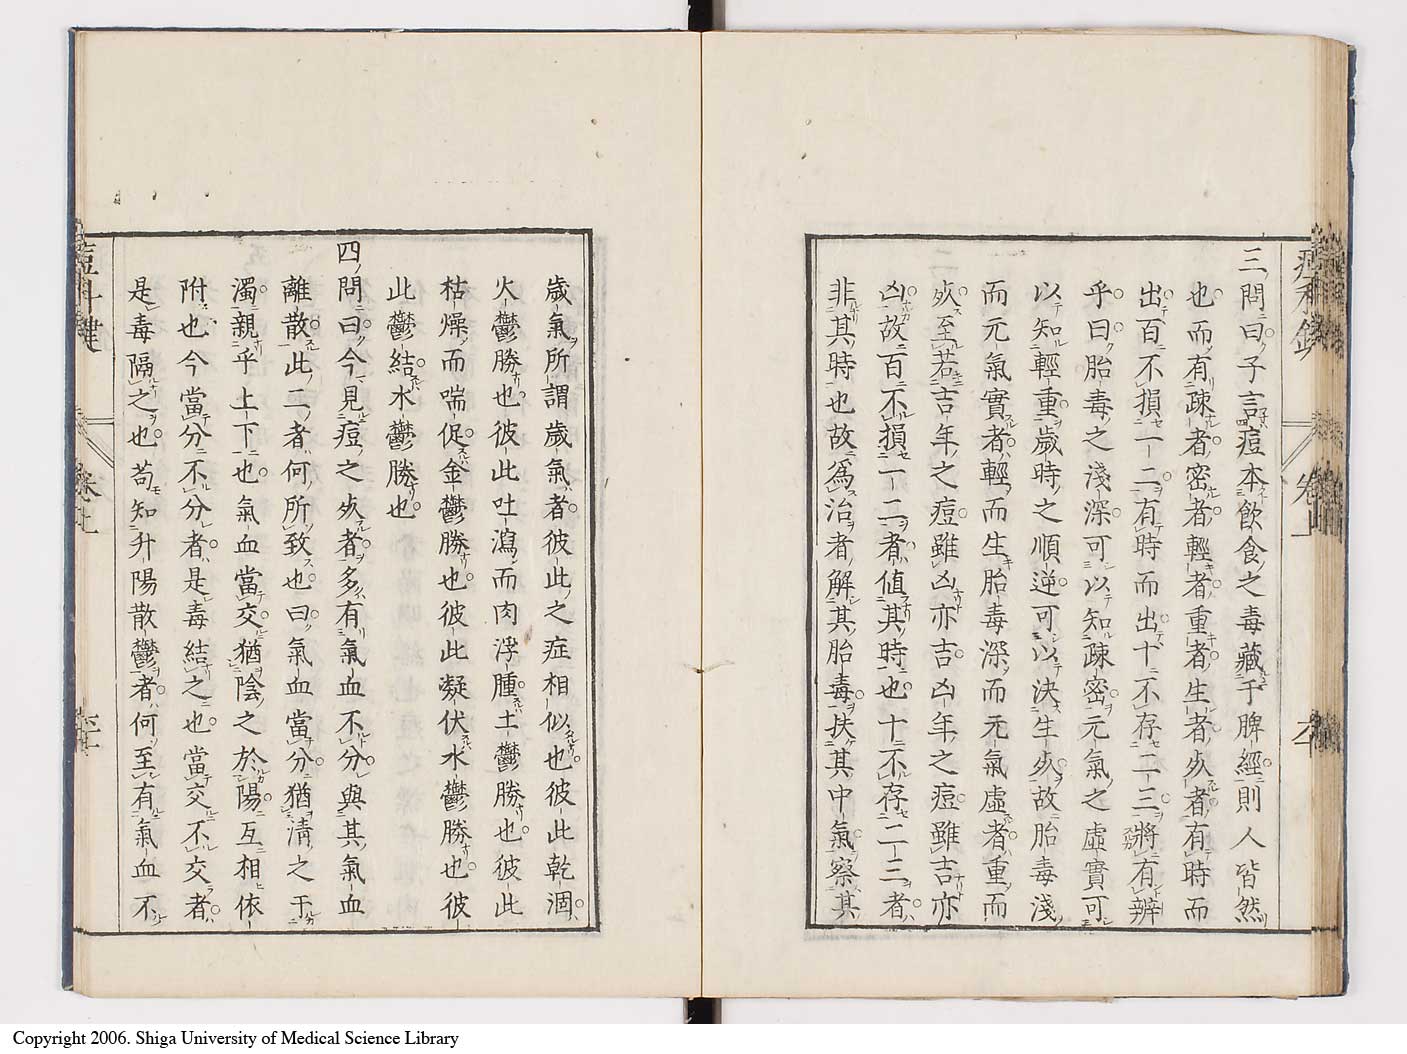 三問曰子言痘本飲食之毒藏于脾經則人皆然
也而有疎者密者輕者重者生者死者有時而
出百不損一二有時而出十不存二三將有辨
乎曰胎毒之淺深可以知疎密元氣之虛實可
以知輕重歲時之順逆可以決生死故胎毒淺
而元氣實者輕而生胎毒深而元氣虛者重而
死至若吉年之痘雖凶亦吉凶年之痘雖吉亦
凶故百不損一二者値其時也十不存二三者
非其時也故為治者解其胎毒扶其中氣察其
歲氣所謂歲氣者彼此之症相似也彼此乾涸
火鬱勝也彼此吐瀉而肉浮腫土鬱勝也彼此
枯燥而喘促金鬱勝也彼此凝伏水鬱勝也彼
此鬱結木鬱勝也
四問曰今見痘之死者多有氣血不分與其氣血
離散此二者何所致也曰氣血當分猶清之干
濁親乎上下也氣血當交猶陰之於陽互相依
附也今當分不分者是毒結之也當交不交者
是毒隔之也苟知升陽散鬱者何至有氣血不
痘科鍵
Copyright 2006. Shiga University of Medical Science Library